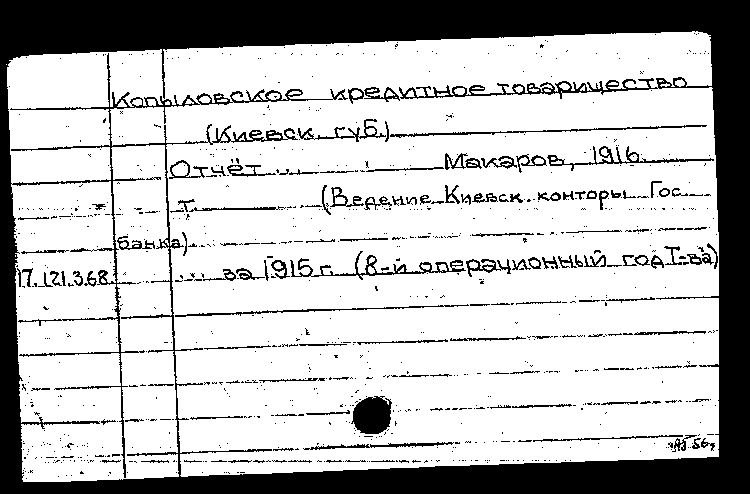 Копыловское кредитное товарищество
(Киевск. губ.)
Отчёт ... Макаров, 1916.
т. (Ведение Киевск. конторы Гос.
банка).
17.121.3.68. ... за 1915 г. (8-й операционный год Т-ва)
56